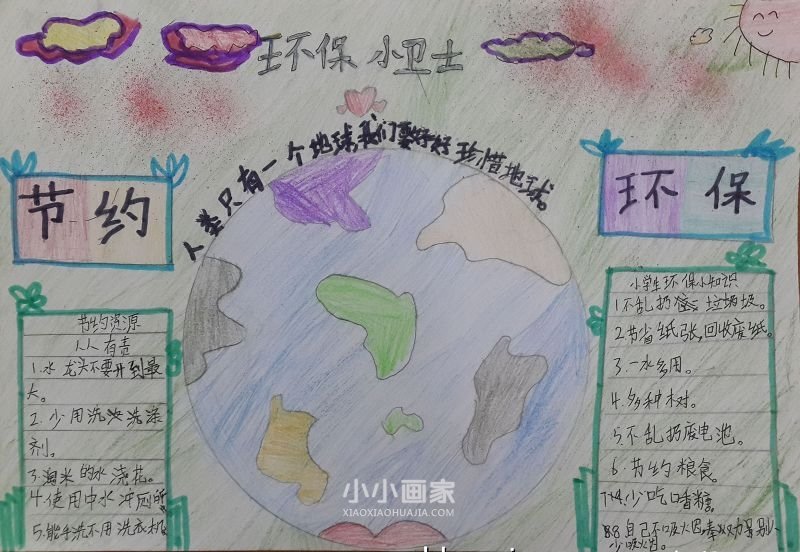 环保小卫士
人类只有一个地球,我们要好好珍惜地球。
节约
环保
节约资源
人人有责
1.水龙头不要开到最
大。
2.少用洗洗涤
剂。
3.淘米的水浇花。
4.使用中水冲厕所
5.能手洗不用洗衣机
小学生环保小知识
1不乱扔垃圾。
2节省纸张,回收废纸。
3.一水多用。
4.多种树。
5不乱扔废电池。
6.节约粮食。
7.少吃口香糖
8自己不吸火因,奉劝别人
少吸烟。
小小画家
XIAOXIAOHUAJIA.COM